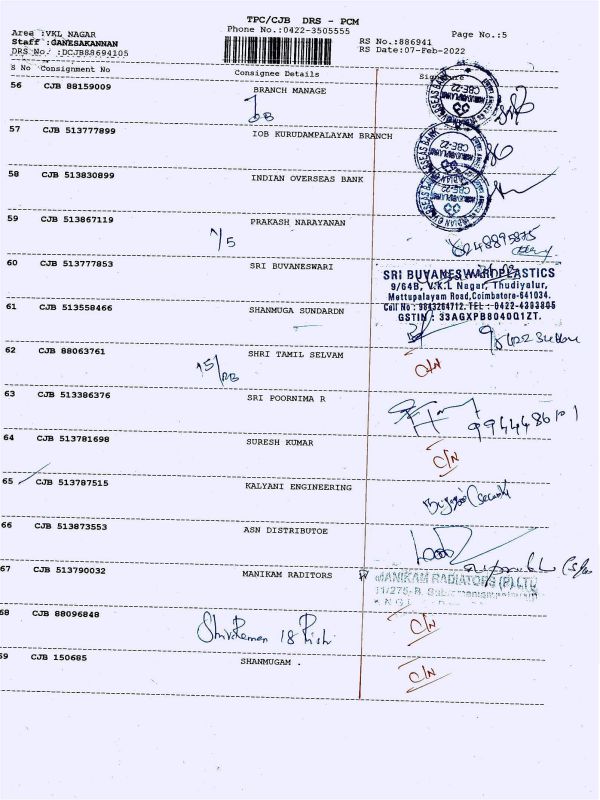 TPC/CJB DRS - PCM
Area :VKL NAGAR Phone No.:0422-3505555 Page No.:5
Staff :GANESAKANNAN RS No.:886941
DRS No. :DCJB88694105 RS Date:07-Feb-2022
S No Consignment No Consignee Details Signature
56 CJB 88159009 BRANCH MANAGE
IOB
57 CJB 513777899 IOB KURUDAMPALAYAM BRANCH
58 CJB 513830899 INDIAN OVERSEAS BANK
59 CJB 513867119 PRAKASH NARAYANAN
60 CJB 513777853 SRI BUVANESWARI
SRI BUVANESWARI PLASTICS
9/64B, V.K.L Nagar, Thudiyalur,
Mettupalayam Road,Coimbatore-641034.
Cell No : 9843264712. TEL : 0422-4303805
GSTIN : 33AGXPB8040Q1ZT.
61 CJB 513558466 SHANMUGA SUNDARDN
62 CJB 88063761 SHRI TAMIL SELVAM C/N
63 CJB 513386376 SRI POORNIMA R
9944486101
64 CJB 513781698 SURESH KUMAR C/N
65 CJB 513787515 KALYANI ENGINEERING
66 CJB 513873553 ASN DISTRIBUTOE
67 CJB 513790032 MANIKAM RADITORS
MANIKAM RADIATORS (P) LTD
68 CJB 88096848 C/N
69 CJB 150685 SHANMUGAM . C/N